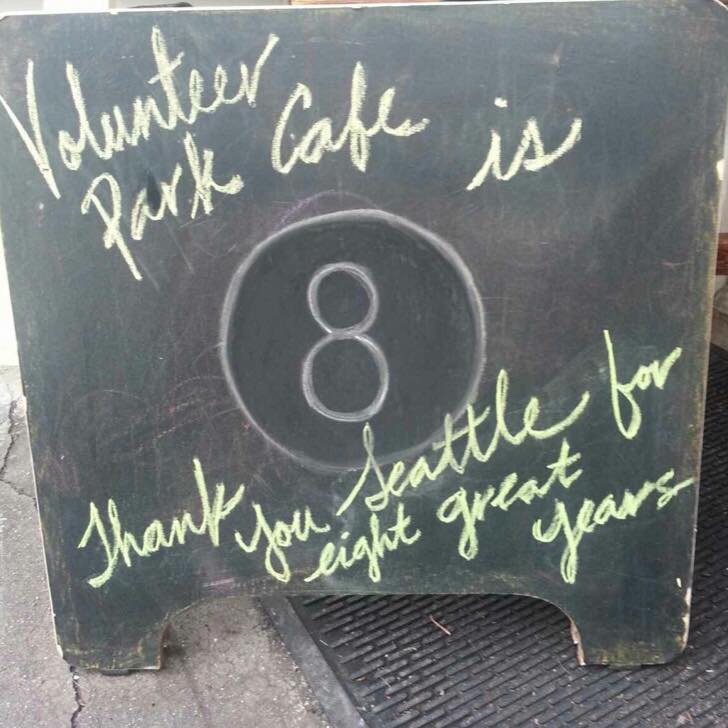 Volunteer
Park Cafe is
8
Thank you Seattle for
eight great
years